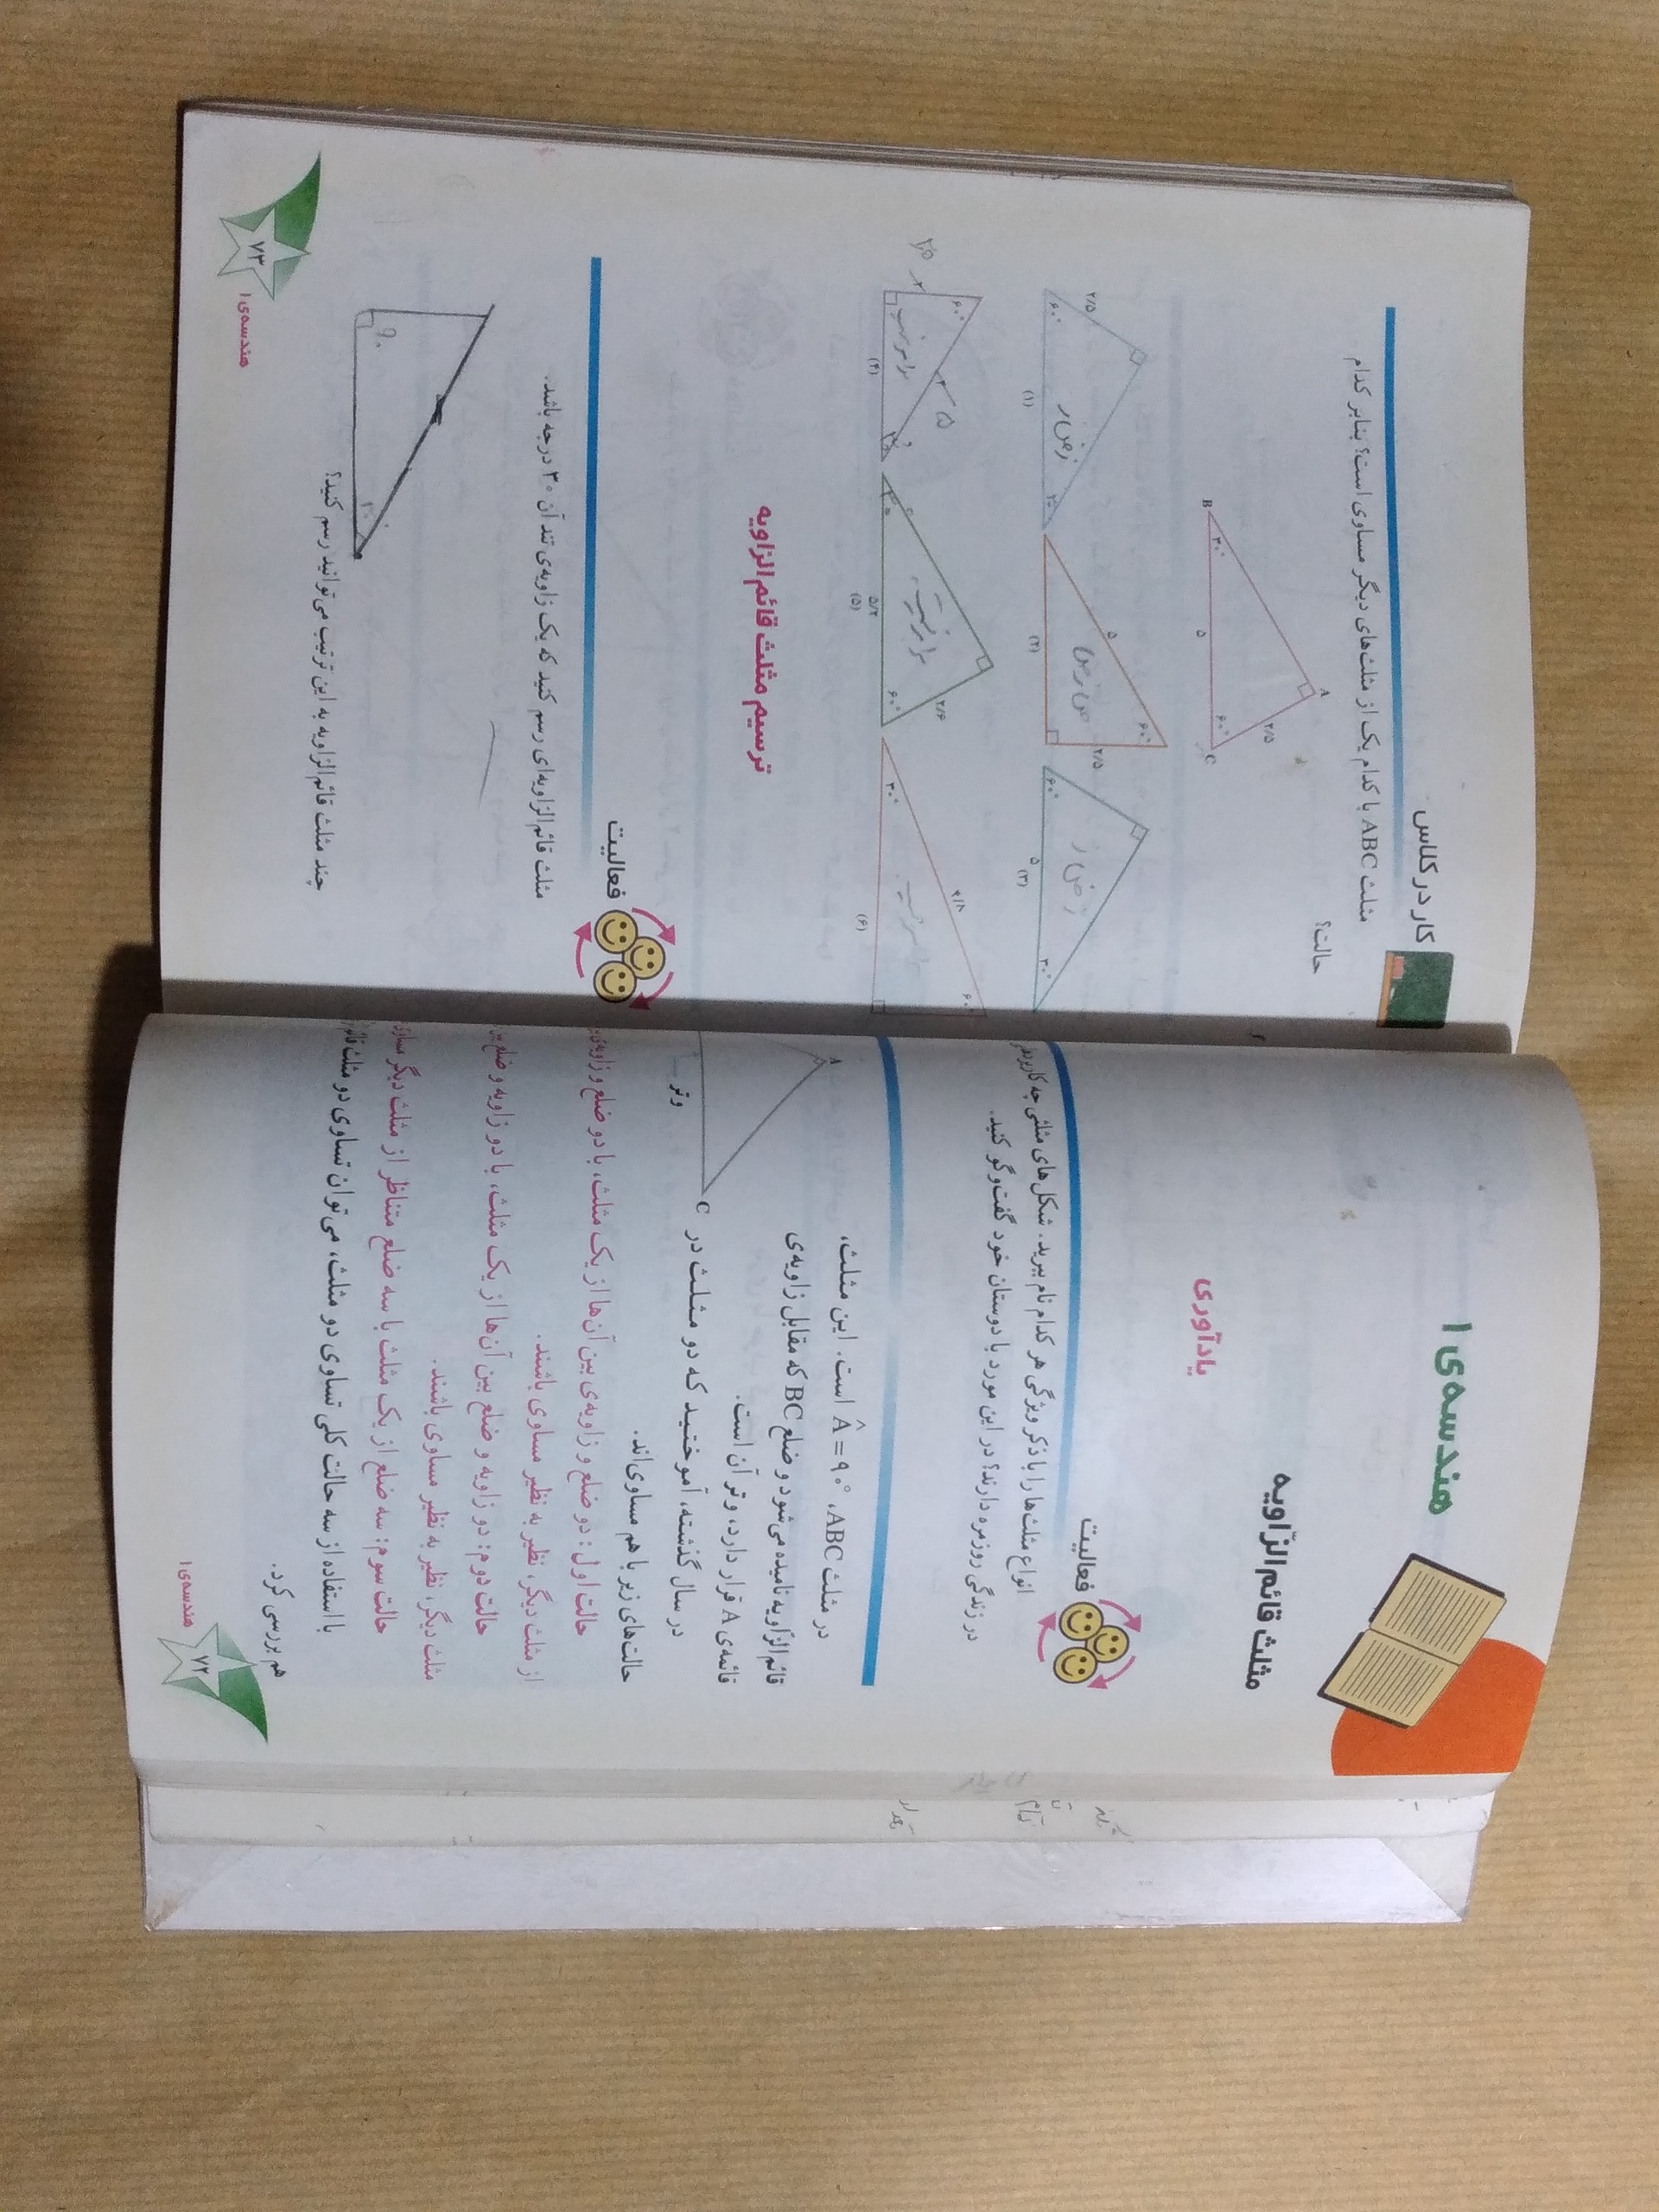 هندسه‌ی ۱
مثلث قائم‌الزّاویه
یادآوری
فعالیت
انواع مثلث‌ها را با ذکر ویژگی هر کدام نام ببرید. شکل های مثلثی چه کاربردهایی
در زندگی روزمره دارند؟ در این مورد با دوستان خود گفت‌وگو کنید.
در مثلث ABC، Â = ۹۰° است. این مثلث،
قائم‌الزّاویه نامیده می‌شود و ضلع BC که مقابل زاویه‌ی
قائمه‌ی A قرار دارد، وتر آن است.
A
C
وتر
در سال گذشته، آموختید که دو مثلث در
حالت‌های زیر با هم مساوی‌اند.
حالت اول: دو ضلع و زاویه‌ی بین آن‌ها از یک مثلث، با دو ضلع و زاویه‌ی
از مثلث دیگر، نظیر به نظیر مساوی باشند.
حالت دوم: دو زاویه و ضلع بین آن‌ها از یک مثلث، با دو زاویه و ضلع بین
مثلث دیگر، نظیر به نظیر مساوی باشند.
حالت سوم: سه ضلع از یک مثلث با سه ضلع متناظر از مثلث دیگر مساوی
با استفاده از سه حالت کلی تساوی دو مثلث، می‌توان تساوی دو مثلث قائم
هم بررسی کرد.
۷۲
هندسه‌ی ۱
کار در کلاس
مثلث ABC با کدام یک از مثلث‌های دیگر مساوی است؟ بنابر کدام
حالت؟
A
B
C
۳۰°
۶۰°
۲/۵
۵
۲/۵
۶۰°
۳۰
(۱)
ز ض ز
۵
۶۰°
۲/۵
(۲)
ض ز ض
۶۰°
۳۰°
۵
(۳)
ز ض ز
۶۰°
(۴)
برابر نیست
۲/۶
۶۰°
۵/۲
(۵)
برابر نیست
۳۰°
۴/۸
۶۰°
(۶)
ترسیم مثلث قائم‌الزاویه
فعالیت
مثلث قائم‌الزاویه‌ای رسم کنید که یک زاویه‌ی تند آن ۳۰ درجه باشد.
۹۰
۳۰
چند مثلث قائم‌الزاویه به این ترتیب می‌توانید رسم کنید؟
۷۳
هندسه‌ی ۱